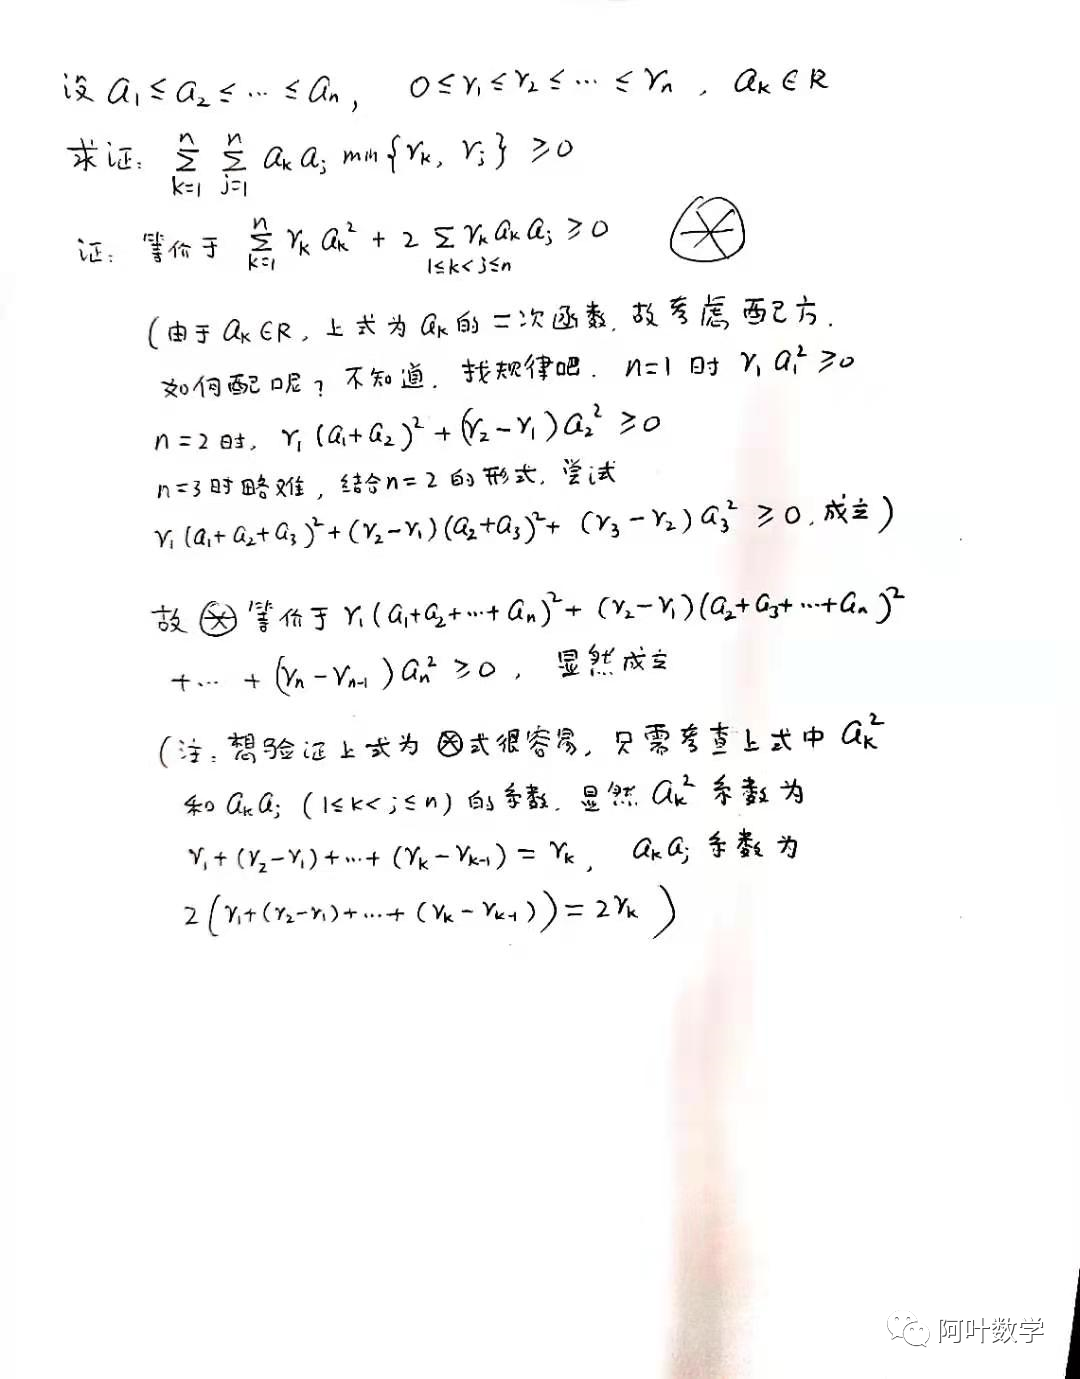 设 a₁≤a₂≤…≤aₙ, 0≤r₁≤r₂≤…≤rₙ, aₖ∈R
求证: ∑_{k=1}^{n} ∑_{j=1}^{n} aₖaⱼ min{rₖ, rⱼ} ≥0
证: 等价于 ∑_{k=1}^{n} rₖaₖ² + 2 ∑_{1≤k<j≤n} rₖaₖaⱼ ≥0 ⊛
(由于 aₖ∈R, 上式为 aₖ 的二次函数, 故考虑配方.
如何配呢? 不知道. 找规律吧. n=1 时 r₁a₁² ≥0
n=2时, r₁(a₁+a₂)²+(r₂-r₁)a₂² ≥0
n=3时略难, 结合n=2的形式, 尝试
r₁(a₁+a₂+a₃)²+(r₂-r₁)(a₂+a₃)²+(r₃-r₂)a₃² ≥0, 成立)
故⊛等价于 r₁(a₁+a₂+…+aₙ)²+(r₂-r₁)(a₂+a₃+…+aₙ)²
+…+(rₙ-rₙ₋₁)aₙ² ≥0, 显然成立
(注: 想验证上式为⊛式很容易, 只需考查上式中 aₖ²
和 aₖaⱼ (1≤k<j≤n) 的系数. 显然 aₖ² 系数为
r₁+(r₂-r₁)+…+(rₖ-rₖ₋₁)=rₖ, aₖaⱼ 系数为
2(r₁+(r₂-r₁)+…+(rₖ-rₖ₋₁))=2rₖ)
阿叶数学